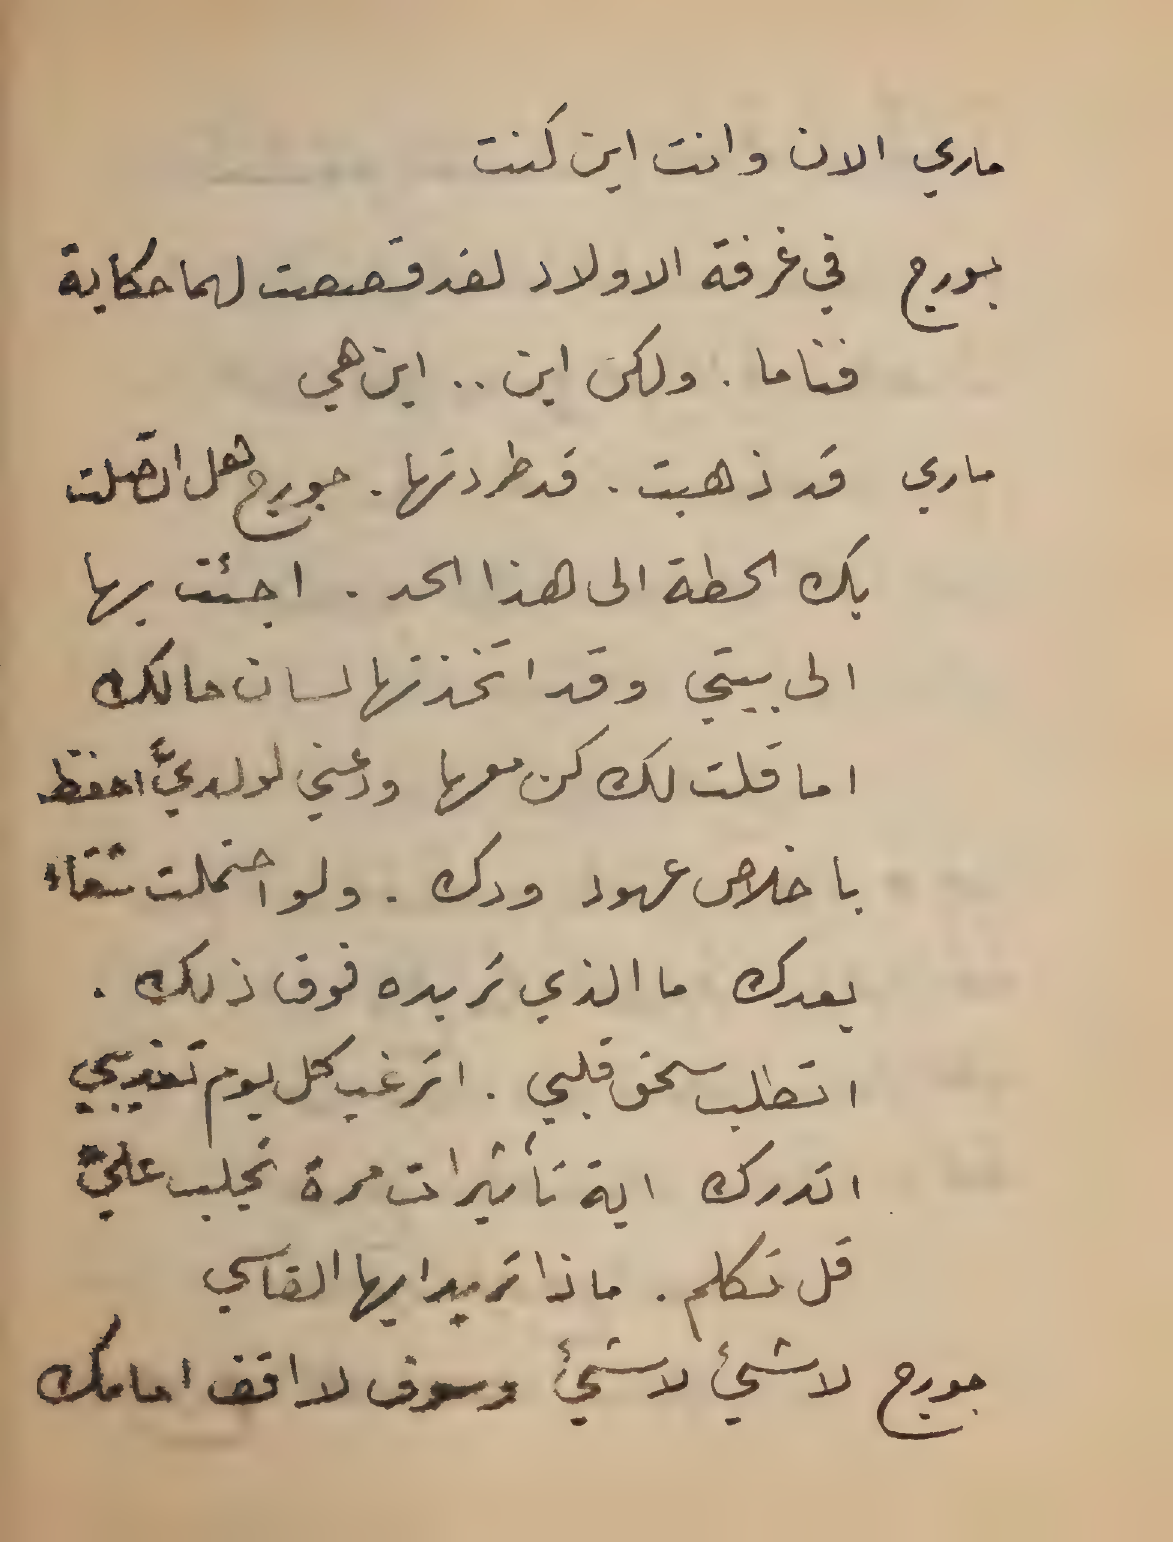 ماري الان وانت اين كنت
جورج في غرفة الاولاد لقد قصصت لهما حكاية
فناما . ولكن اين .. اين هي
ماري قد ذهبت . قد طردتها . جورج هل اتصلت
بك الحطة الى هذا الحد . اجئت بها
الى بيتي وقد اتخذتها لسان حالك
اما قلت لك كن معها ودعني لولديَّ احفظ
باخلاص عهود ودك . ولو احتملت شقاء
بعدك ما الذي تريده فوق ذلك .
اتطلب سحق قلبي . اترغب كل يوم تعذيبي
اتدرك اية تأثيرات مرة تجلب عليَّ
قل تكلم . ماذا تريد ايها القاسي
جورج لا شيئ لا شيئ وسوف لا اقف امامك